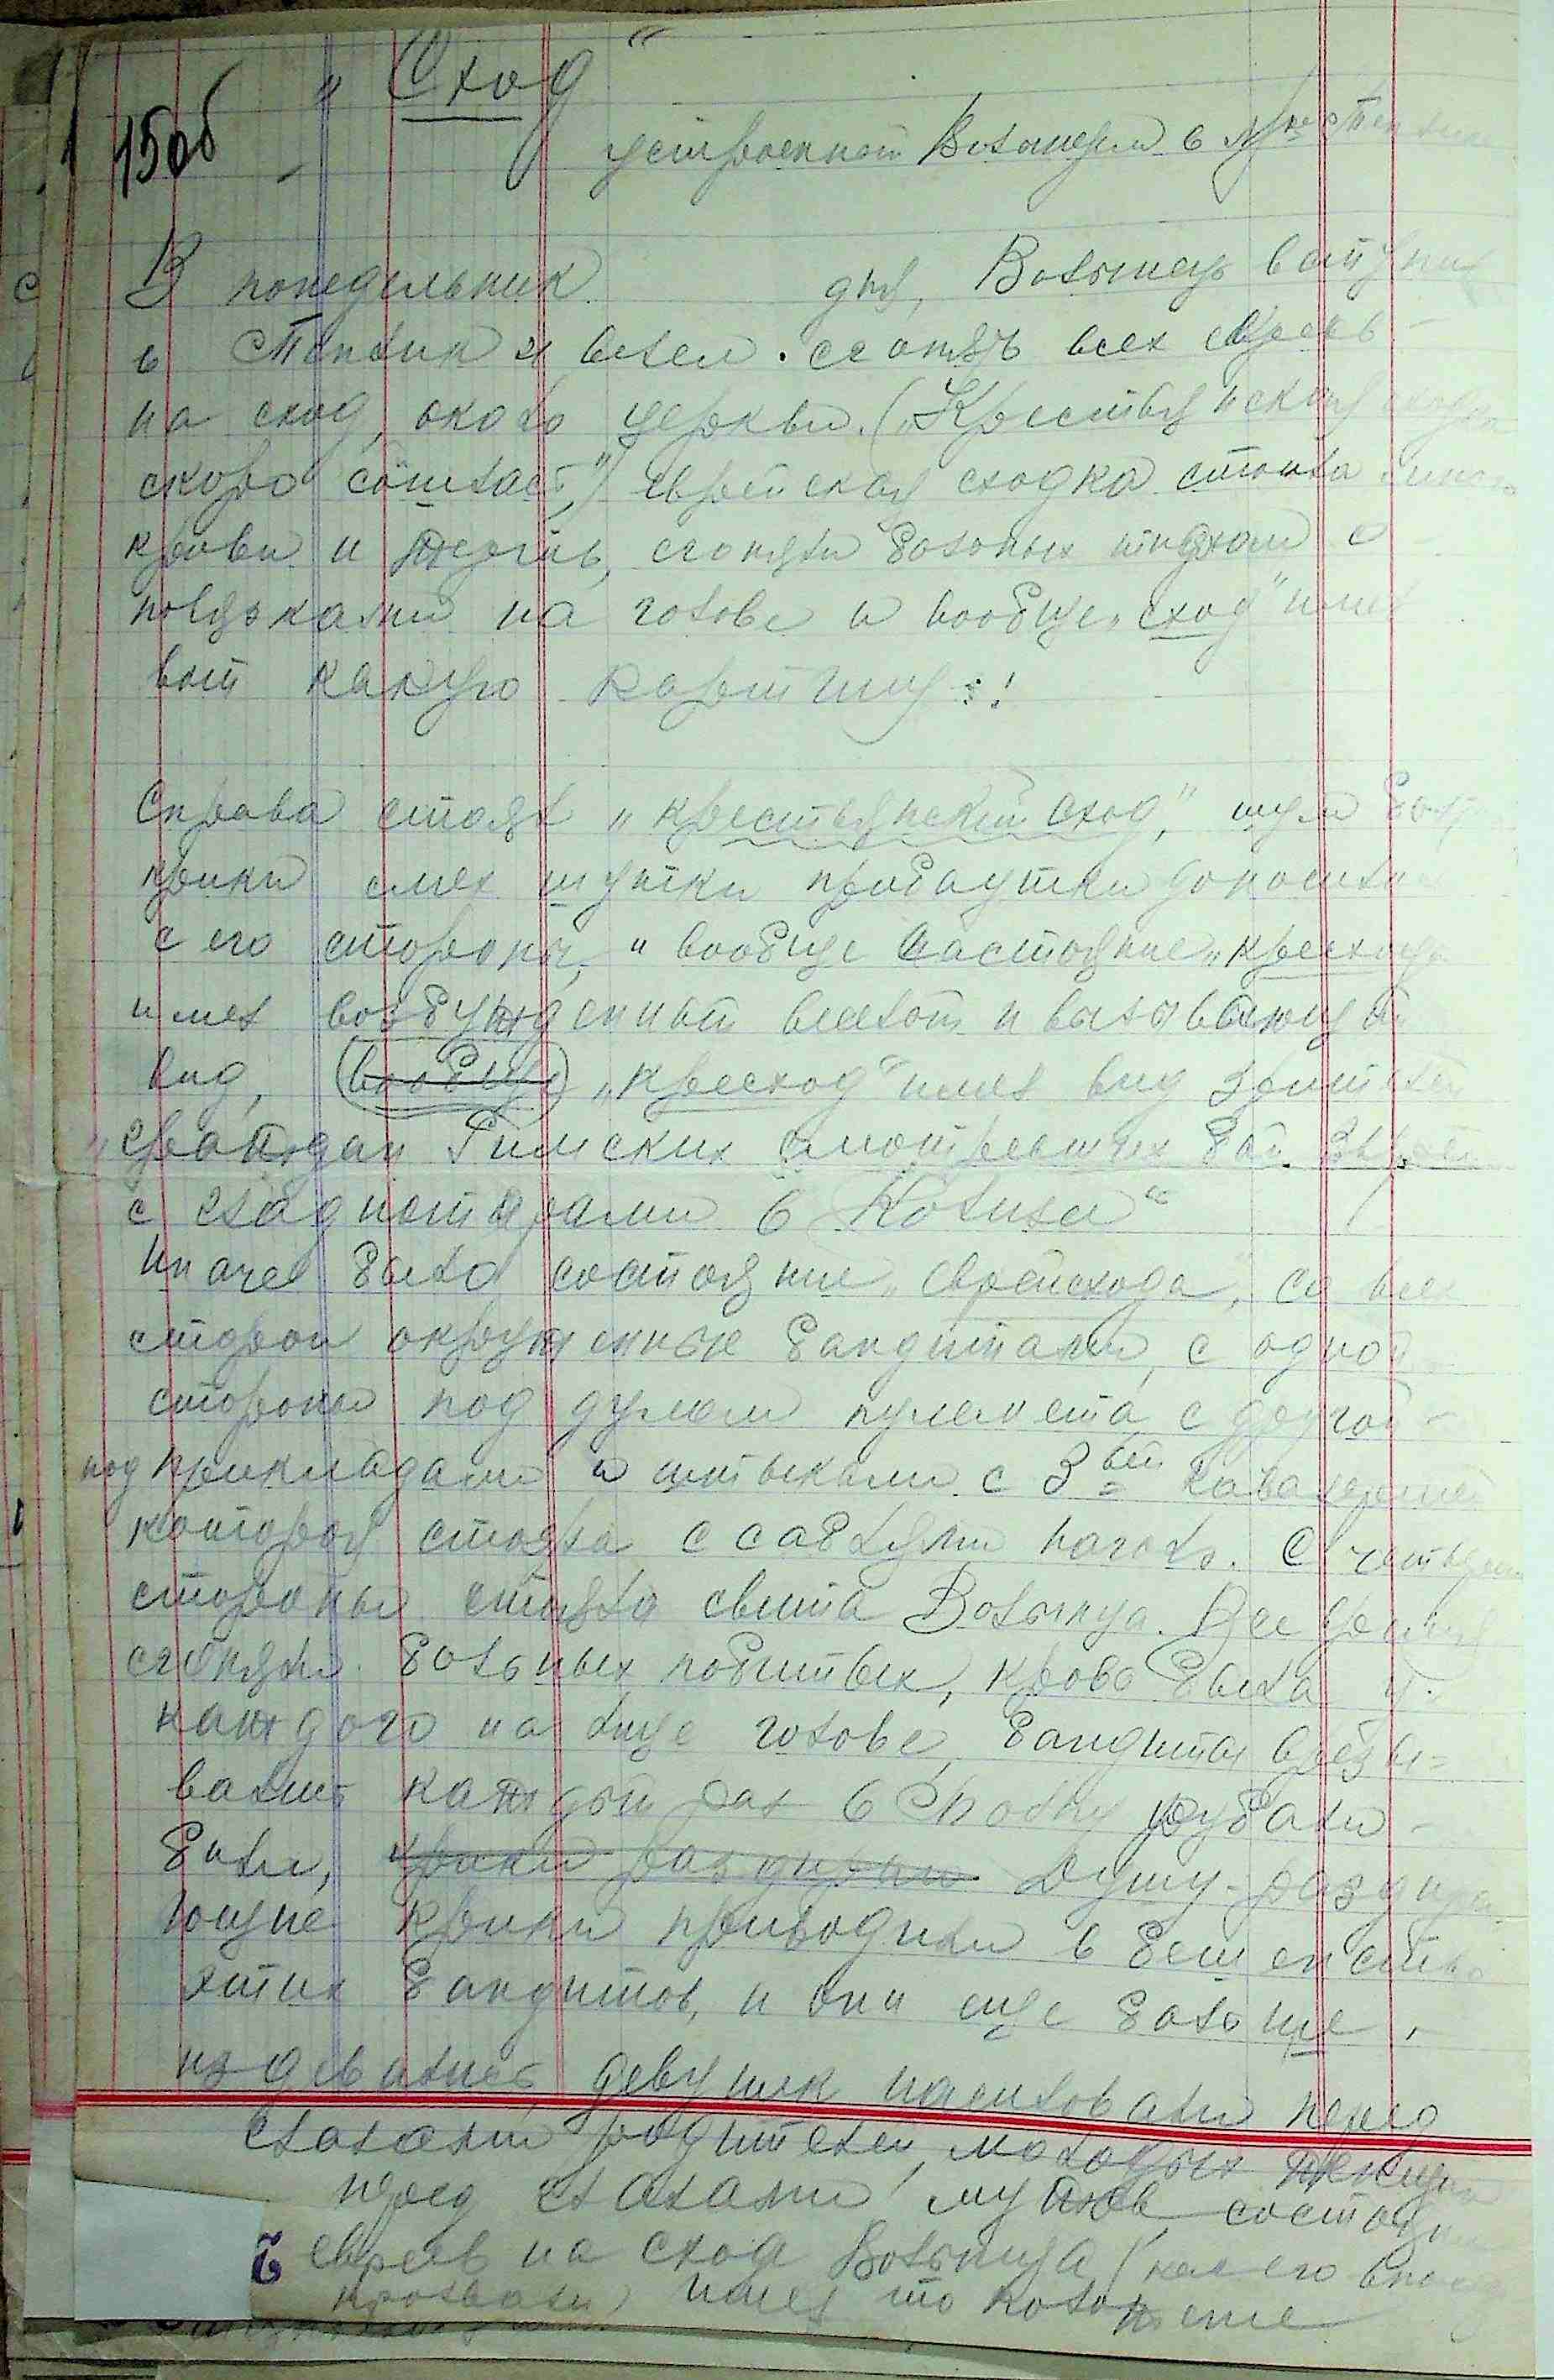 „Сход“
150б
устроенный Волынцем в
В понедельник дня, Волынец вступил
в Теплик и велел согнать всех евреев
на сход, около церкви. („Крестьянская сходка
скоро сошлась,“) еврейская сходка стоила много
крови и жертв, сгоняли больных
на готове и вообще „сход“ имел
вот какую картину:!
Справа стоял „крестьянский сход,“ шум
крики смех шутки прибаутки доносились
с его стороны, и вообще настояние „кресхода
имел возбужденный веселой и вызывающий
вид, вообще „кресход“ имел вид зрителей
„граждан Римских смотревших бой зверей
с гладиаторами в Колизеи“
Иначе было состояние „еврейсхода“, со всех
сторон окруженные бандитами, с одной
стороны под дулом пулемета, с другой
под прикладами и штыками с 3ьей кавалерией
которая стояла с саблями наголо. С четвертой
стороны стояла свита Волынца. Все время
сгоняли больных побитых, кровь была у
каждого на лице голове, бандиты врезы-
вались каждый раз в толпу рубали
били, крики раздирали душу-раздира
ющие крики приводили в бешенство
этих бандитов, и они еще больше
издевались, девушек насиловали перед
глазами родителей, молодых женщин
перед глазами мужьев, состояние
евреев на сход Волынца (как его
прозвали) имел то положение